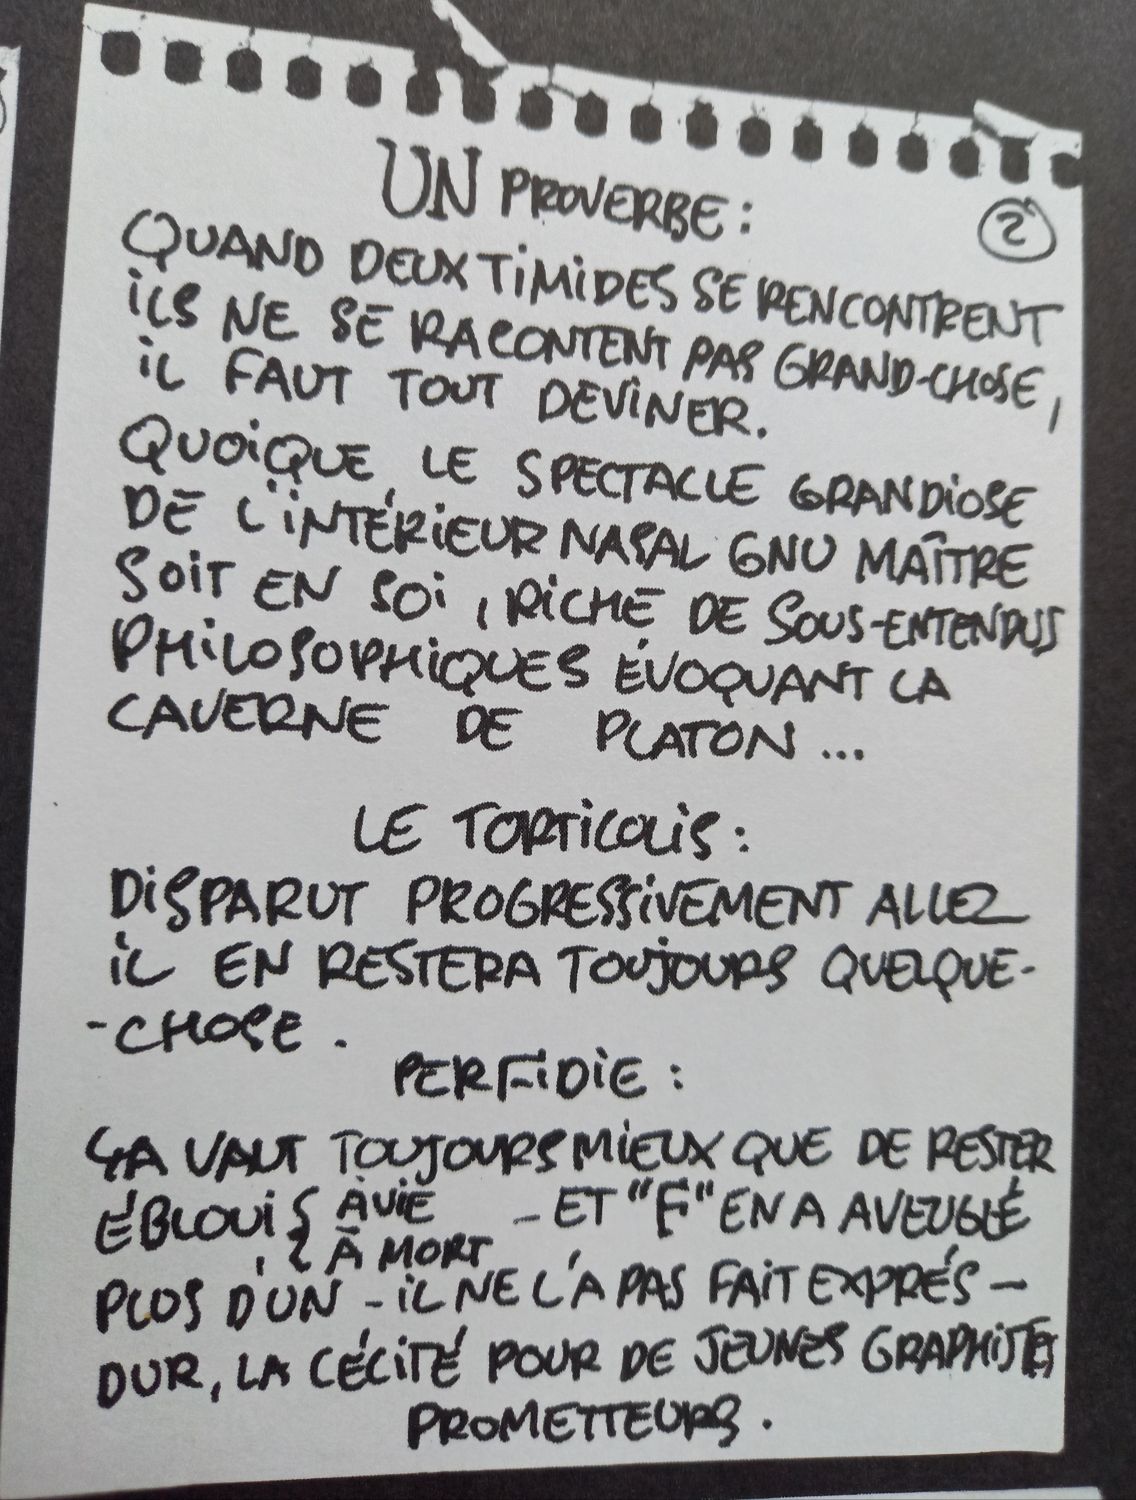 UN PROVERBE :
2
QUAND DEUX TIMIDES SE RENCONTRENT
ILS NE SE RACONTENT PAS GRAND-CHOSE,
IL FAUT TOUT DEVINER.
QUOIQUE, LE SPECTACLE GRANDIOSE
DE L'INTÉRIEUR NASAL GNU MAÎTRE
SOIT EN SOI, RICHE DE SOUS-ENTENDUS
PHILOSOPHIQUES ÉVOQUANT LA
CAVERNE DE PLATON...
LE TORTICOLIS :
DISPARUT PROGRESSIVEMENT ALLEZ
IL EN RESTERA TOUJOURS QUELQUE-
-CHOSE.
PERFIDIE :
ÇA VAUT TOUJOURS MIEUX QUE DE RESTER
ÉBLOUIS À VIE - ET "F" EN A AVEUGLÉ
À MORT
PLUS D'UN - IL NE L'A PAS FAIT EXPRÉS -
DUR, LA CÉCITÉ POUR DE JEUNES GRAPHISTES
PROMETTEURS.